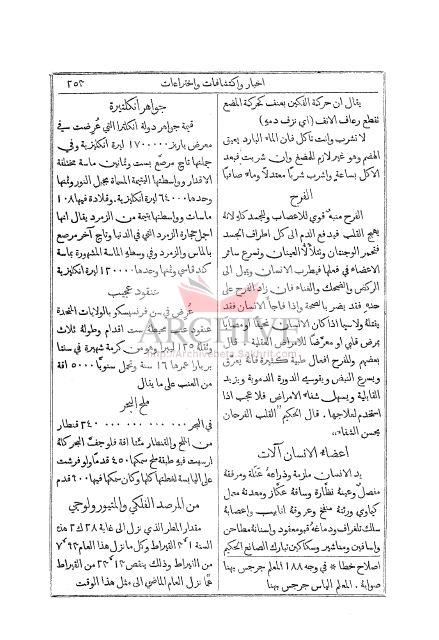 اخبار واكتشافات واختراعات
٢٥٣
يقال ان حركة الفكين بعنف كحركة المضغ
تقطع رعاف الانف (اي نزف دمه)
لا تشرب وانت تأكل فان الماء البارد يعيق
الهضم وهو غير لازم للمضغ وان شربت فبعد
الاكل بساعة واشرب شربًا معتدلًا وماء صافيًا
الفرح
الفرح منبه قوي للاعصاب وللجسد كله لانه
يهيج القلب فيدفع الدم الى كل اطراف الجسد
فتحمر الوجنتان وتتلألأ العينان وتسرع سائر
الاعضاء في فعلها فيطرب الانسان ويميل الى
الركض والضحك والغناء فان زاد الفرح على
حده فقد يضر بالصحة واذا فاجأ الانسان فقد
يقتله ولاسيما اذا كان الانسان نحيفًا او مصابًا
بمرض قلبي او معرضًا للامراض القتلة. قال
بعضهم وللفرح افعال طبية كثيرة فانه يعرق
ويسرع النبض ويقوي الدورة الدموية ويزيد
القابلية ويسهل شفاء الامراض فلا عجب اذا
استخدم لعلاجها. قال الحكيم "القلب الفرحان
يحسن الشفاء"
اعضاء الانسان آلات
يد الانسان ملزمة وذراعه عتلة ومرفقه
مفصل وعينه نظارة وساقه عكاز ومعدته معمل
كياوي ورئته منفخ وعروقه انابيب واعصابه
سلك تلغراف ودماغه
واسافين ومناشير وسكاكين تبارك الصانع الحكيم
اصلاح خطا * في وجه ١٨٨ المعلم جرجس بهنا
صوابة. المعلم الياس جرجس بهنا
جواهر انكلتيرة
قيمة جواهر دولة انكلترا التي عُرضت في
معرض باريز ١٧٠٠٠٠٠ ليرة انكليزية وفي
جملتها تاج مرصع بست وثمانين ماسة مختلفة
الاقدار وواسطتها اليتيمة المسماة بجبل النور وثمنها
وحدها ٦٤٠٠٠٠ ليرة انكليزية. وقلادة فيها ١٠٨
ماسات وواسطتها يتيمة من الزمرد يقال انها
اجل حجارة الزمرد التي في الدنيا وتاج آخر مرصع
بالماس والزمرد وفي وسطه الماسة المشهورة بماسة
وثمنها وحدها ١٢٠٠٠٠ ليرة انكليزية
عنقود عجيب
عُرض في سن فرنسيسكو بالولايات المتحدة
عنقود على محيطه ست اقدام وطوله ثلاث
وثقله ١٣٥ ليبرة وهو من كرمة شهيرة في سنتا
بربارا عمرها ١٦ سنة وتحمل سنويًا ٥٠٠٠ اقة
من العنب على ما يقال
ملح البحر
في البحر ٠٠٠ ٠٠٠ ٠٠٠ ٠٠٠ ٣٤٠ قنطار
من الملح والقنطار مئتا اقة فلو جفت البحر كله
لرسبت فيه طبقة ملح سمكها ٤٥٠ قدمًا ولو فرشت
على اليابسة لغطتها كلها وكان سمكها فيها ٦٠٠ قدم
من المرصد الفلكي والمتيورولوجي
مقدار المطر الذي نزل الى غاية ٢٨ ك ٢ هذه
السنة القيراط وكل ما نزل هذا العام
من القيراط وذلك ينقص من القيراط
عما نزل العام الماضي الى مثل هذا الوقت
ARCHIVE
http://Archivebeta.Sakhrit.com